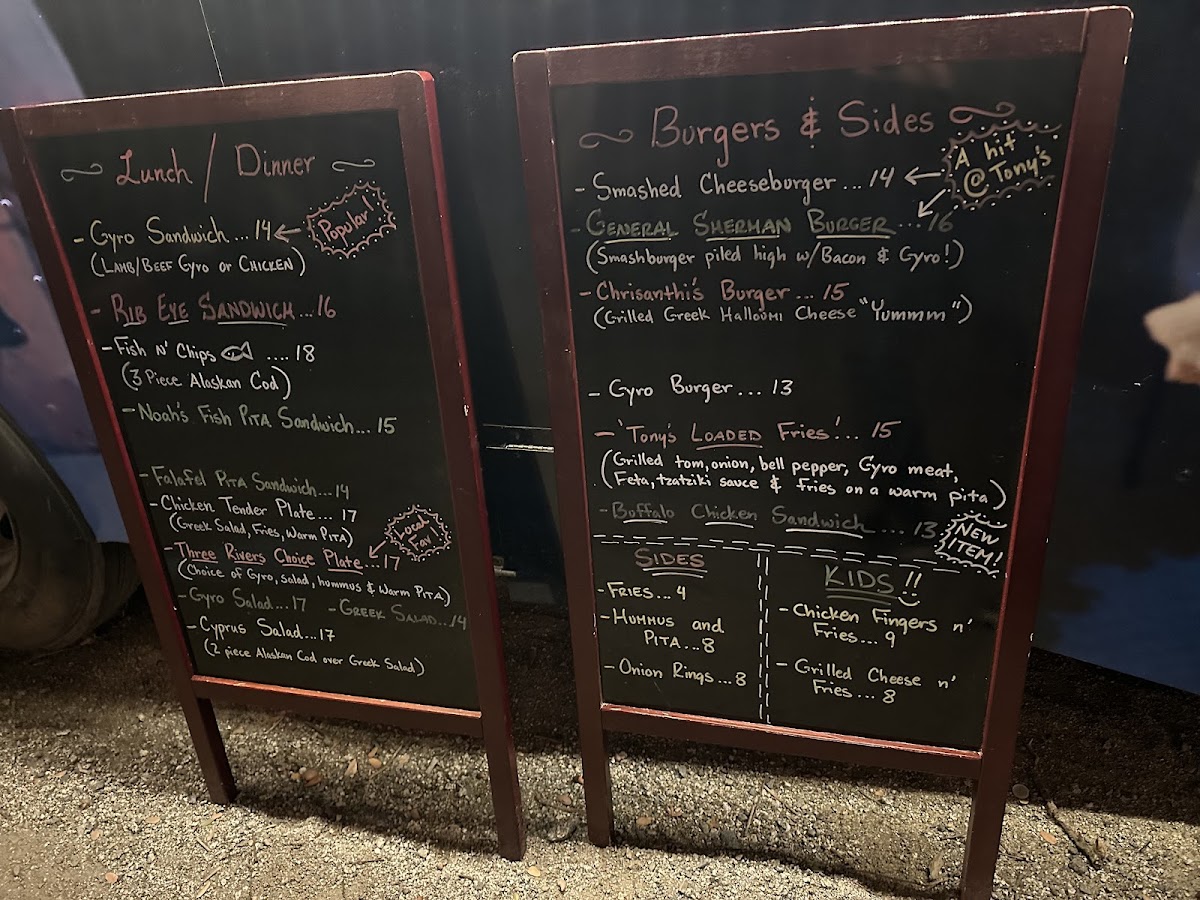 Lunch / Dinner
- Gyro Sandwich... 14 ← Popular!
(Lamb/Beef Gyro or Chicken)
- Rib Eye Sandwich... 16
- Fish n' Chips .... 18
(3 Piece Alaskan Cod)
- Noah's Fish Pita Sandwich... 15
- Falafel Pita Sandwich... 14
- Chicken Tender Plate.... 17
(Greek Salad, Fries, Warm Pita)
Local Fav!
- Three Rivers Choice Plate... 17
(Choice of Gyro, salad, hummus & Warm Pita)
- Gyro Salad... 17 - Greek Salad... 14
- Cyprus Salad... 17
(2 piece Alaskan Cod over Greek Salad)
Burgers & Sides
A hit
@ Tony's
- Smashed Cheeseburger... 14 ←
- General Sherman Burger... 16
(Smashburger piled high w/Bacon & Gyro!)
- Chrisanthi's Burger... 15
(Grilled Greek Halloumi Cheese "Yummm")
- Gyro Burger... 13
- 'Tony's Loaded Fries'... 15
(Grilled tom, onion, bell pepper, Gyro meat,
Feta, tzatziki sauce & fries on a warm pita)
- Buffalo Chicken Sandwich.... 13
NEW
ITEM!
Sides
- Fries... 4
- Hummus and
Pita... 8
- Onion Rings... 8
KIDS!!
- Chicken Fingers n'
Fries... 9
- Grilled Cheese n'
Fries... 8